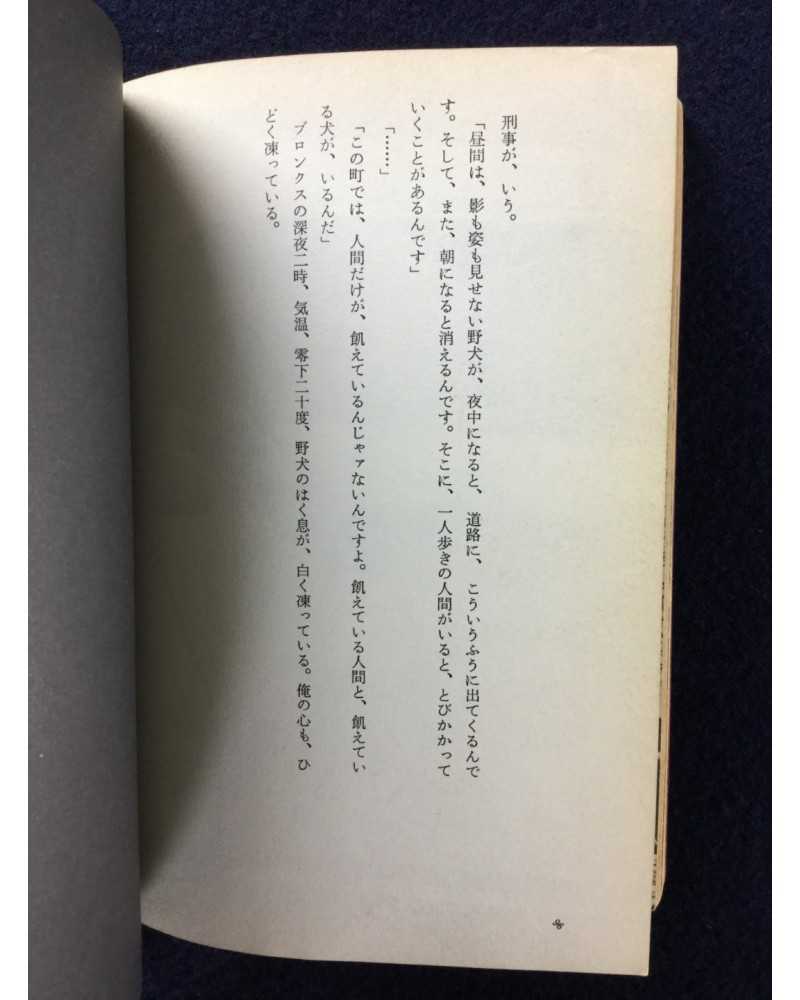 刑事が、いう。
「昼間は、影も姿も見せない野犬が、夜中になると、道路に、こういうふうに出てくるんで
す。そして、また、朝になると消えるんです。そこに、一人歩きの人間がいると、とびかかって
いくことがあるんです」
「……」
「この町では、人間だけが、飢えているんじゃァないんですよ。飢えている人間と、飢えてい
る犬が、いるんだ」
ブロンクスの深夜二時、気温、零下二十度、野犬のはく息が、白く凍っている。俺の心も、ひ
どく凍っている。